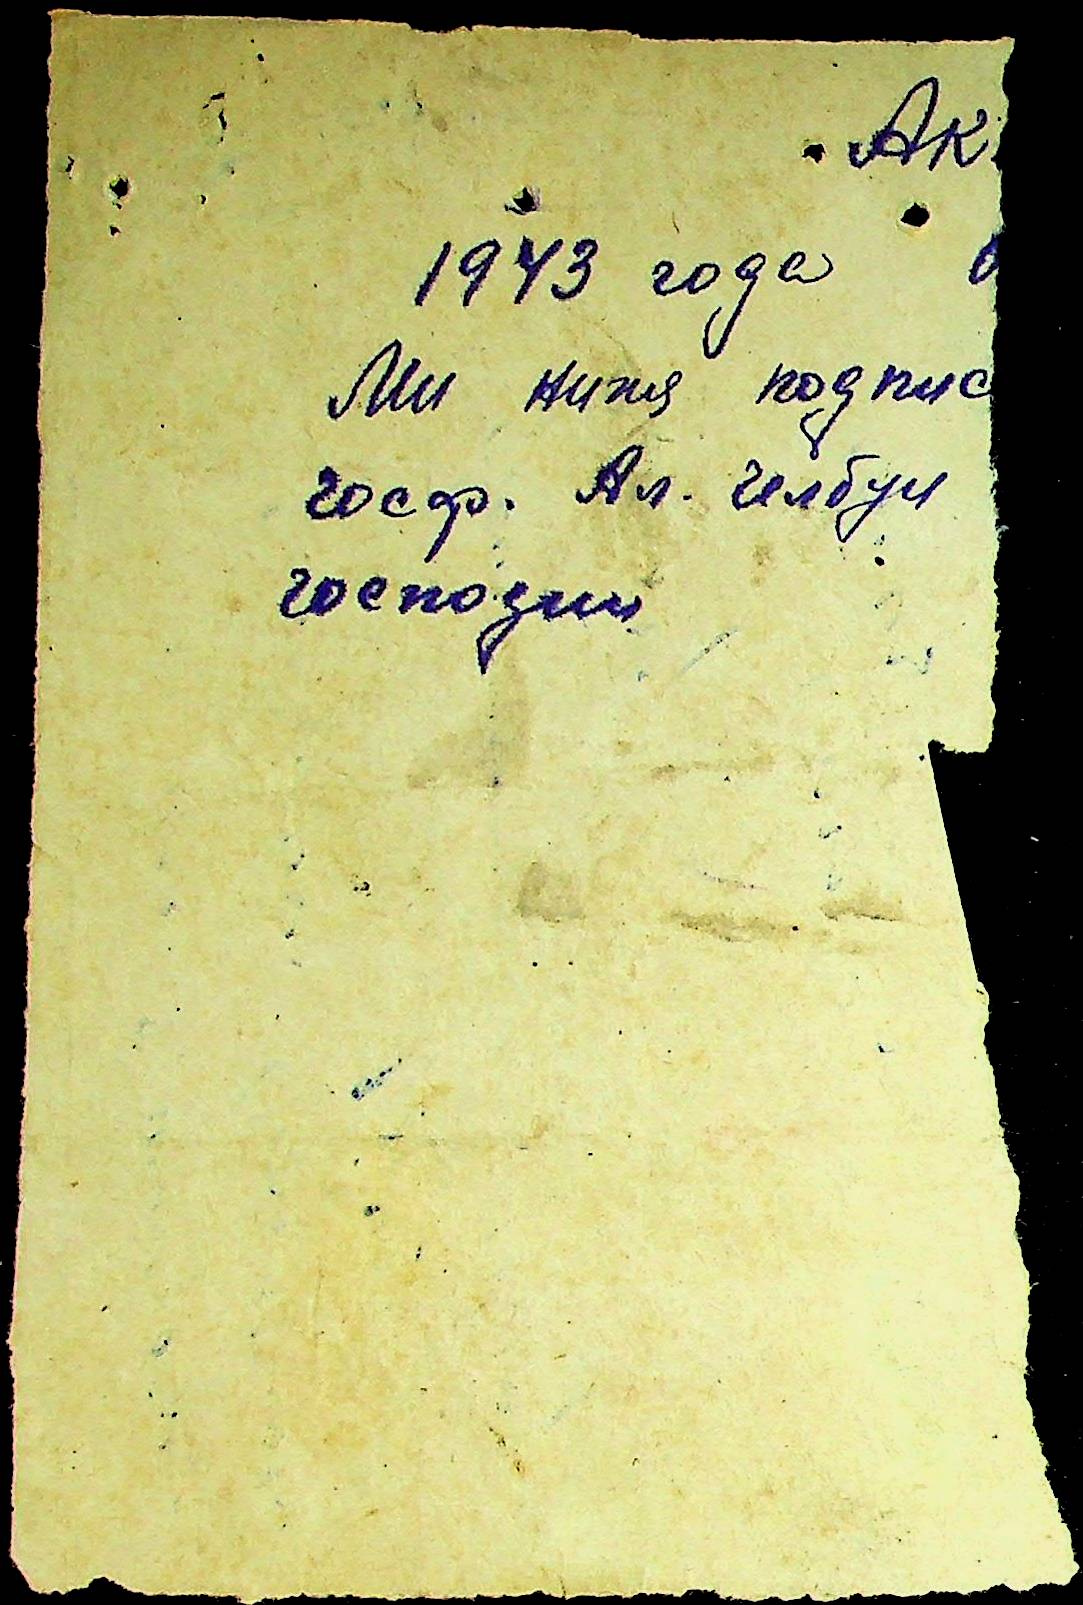 Ак
1943 года в
Ми нижя подпис
госф. Ал. Челбун
господин